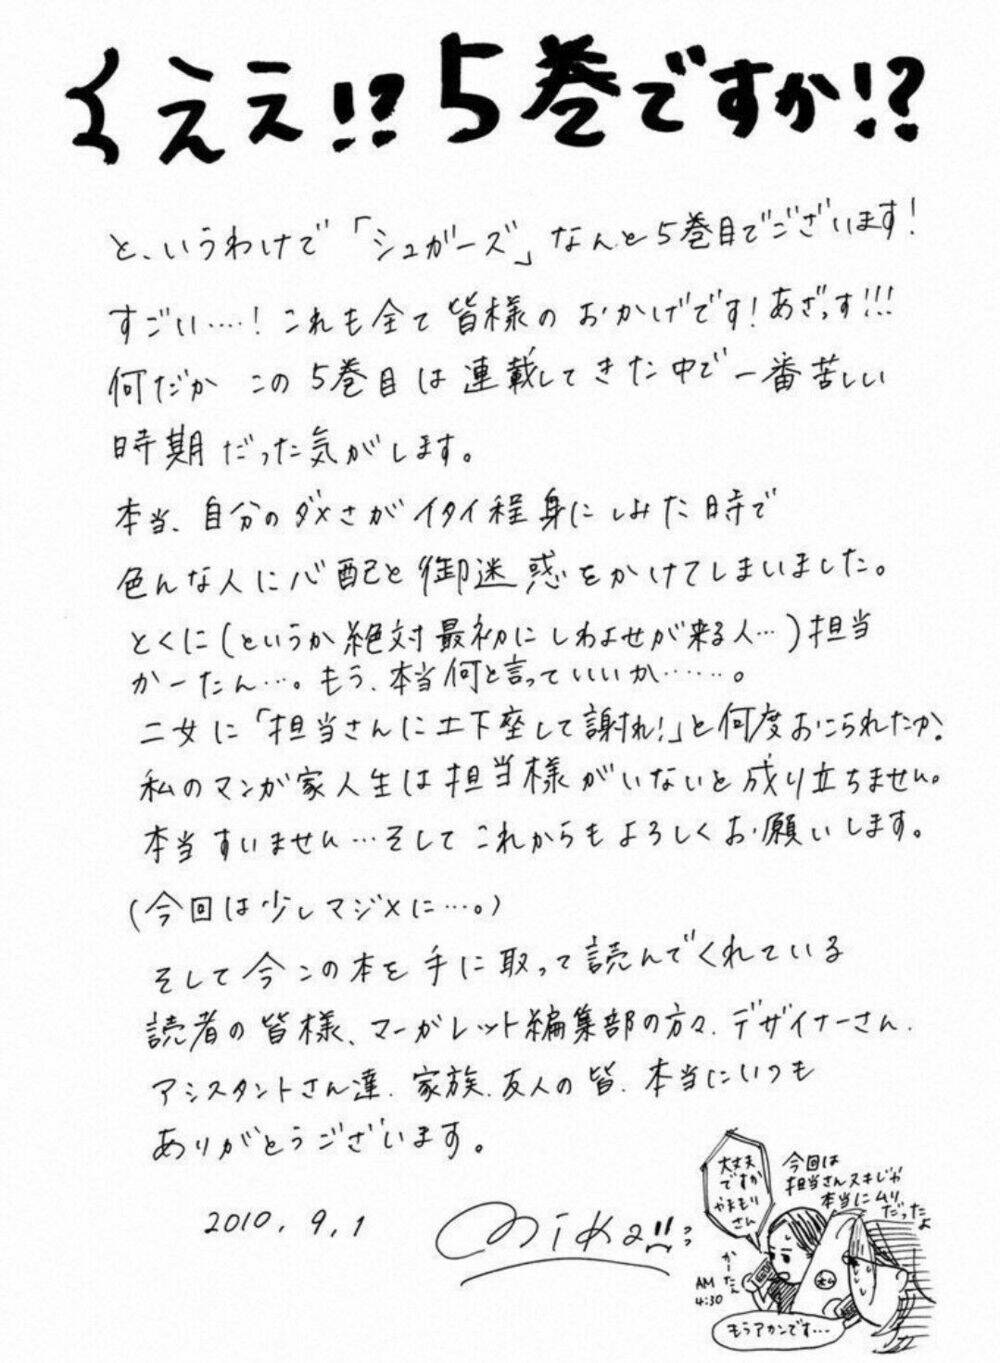 くええ!? 5巻ですか!?
と、いうわけで「シュガーズ」なんと5巻目でございます!
すごい…!これも全て皆様のおかげです!あざっす!!!
何だか この5巻目は連載してきた中で一番苦しい
時期だった気がします。
本当、自分のダメさがイタイ程身にしみた時で
色んな人に心配と御迷惑をかけてしまいました。
とくに(というか絶対最初にしわよせが来る人…)担当
かーたん…。もう、本当何と言っていいか……。
二女に「担当さんに土下座して謝れ!」と何度おこられたか。
私のマンガ家人生は担当様がいないと成り立ちません。
本当すいません…そしてこれからもよろしくお願いします。
(今回は少しマジメに…。)
そして今この本を手に取って読んでくれている
読者の皆様、マーガレット編集部の方々、デザイナーさん、
アシスタントさん達、家族、友人の皆、本当にいつも
ありがとうございます。
2010.9.1
mika
大丈夫
ですか
やまもり
さん
今回は
担当さんヌキじゃ
本当にムリ
だったよ
かーたん
AM
4:30
もうアカンです…